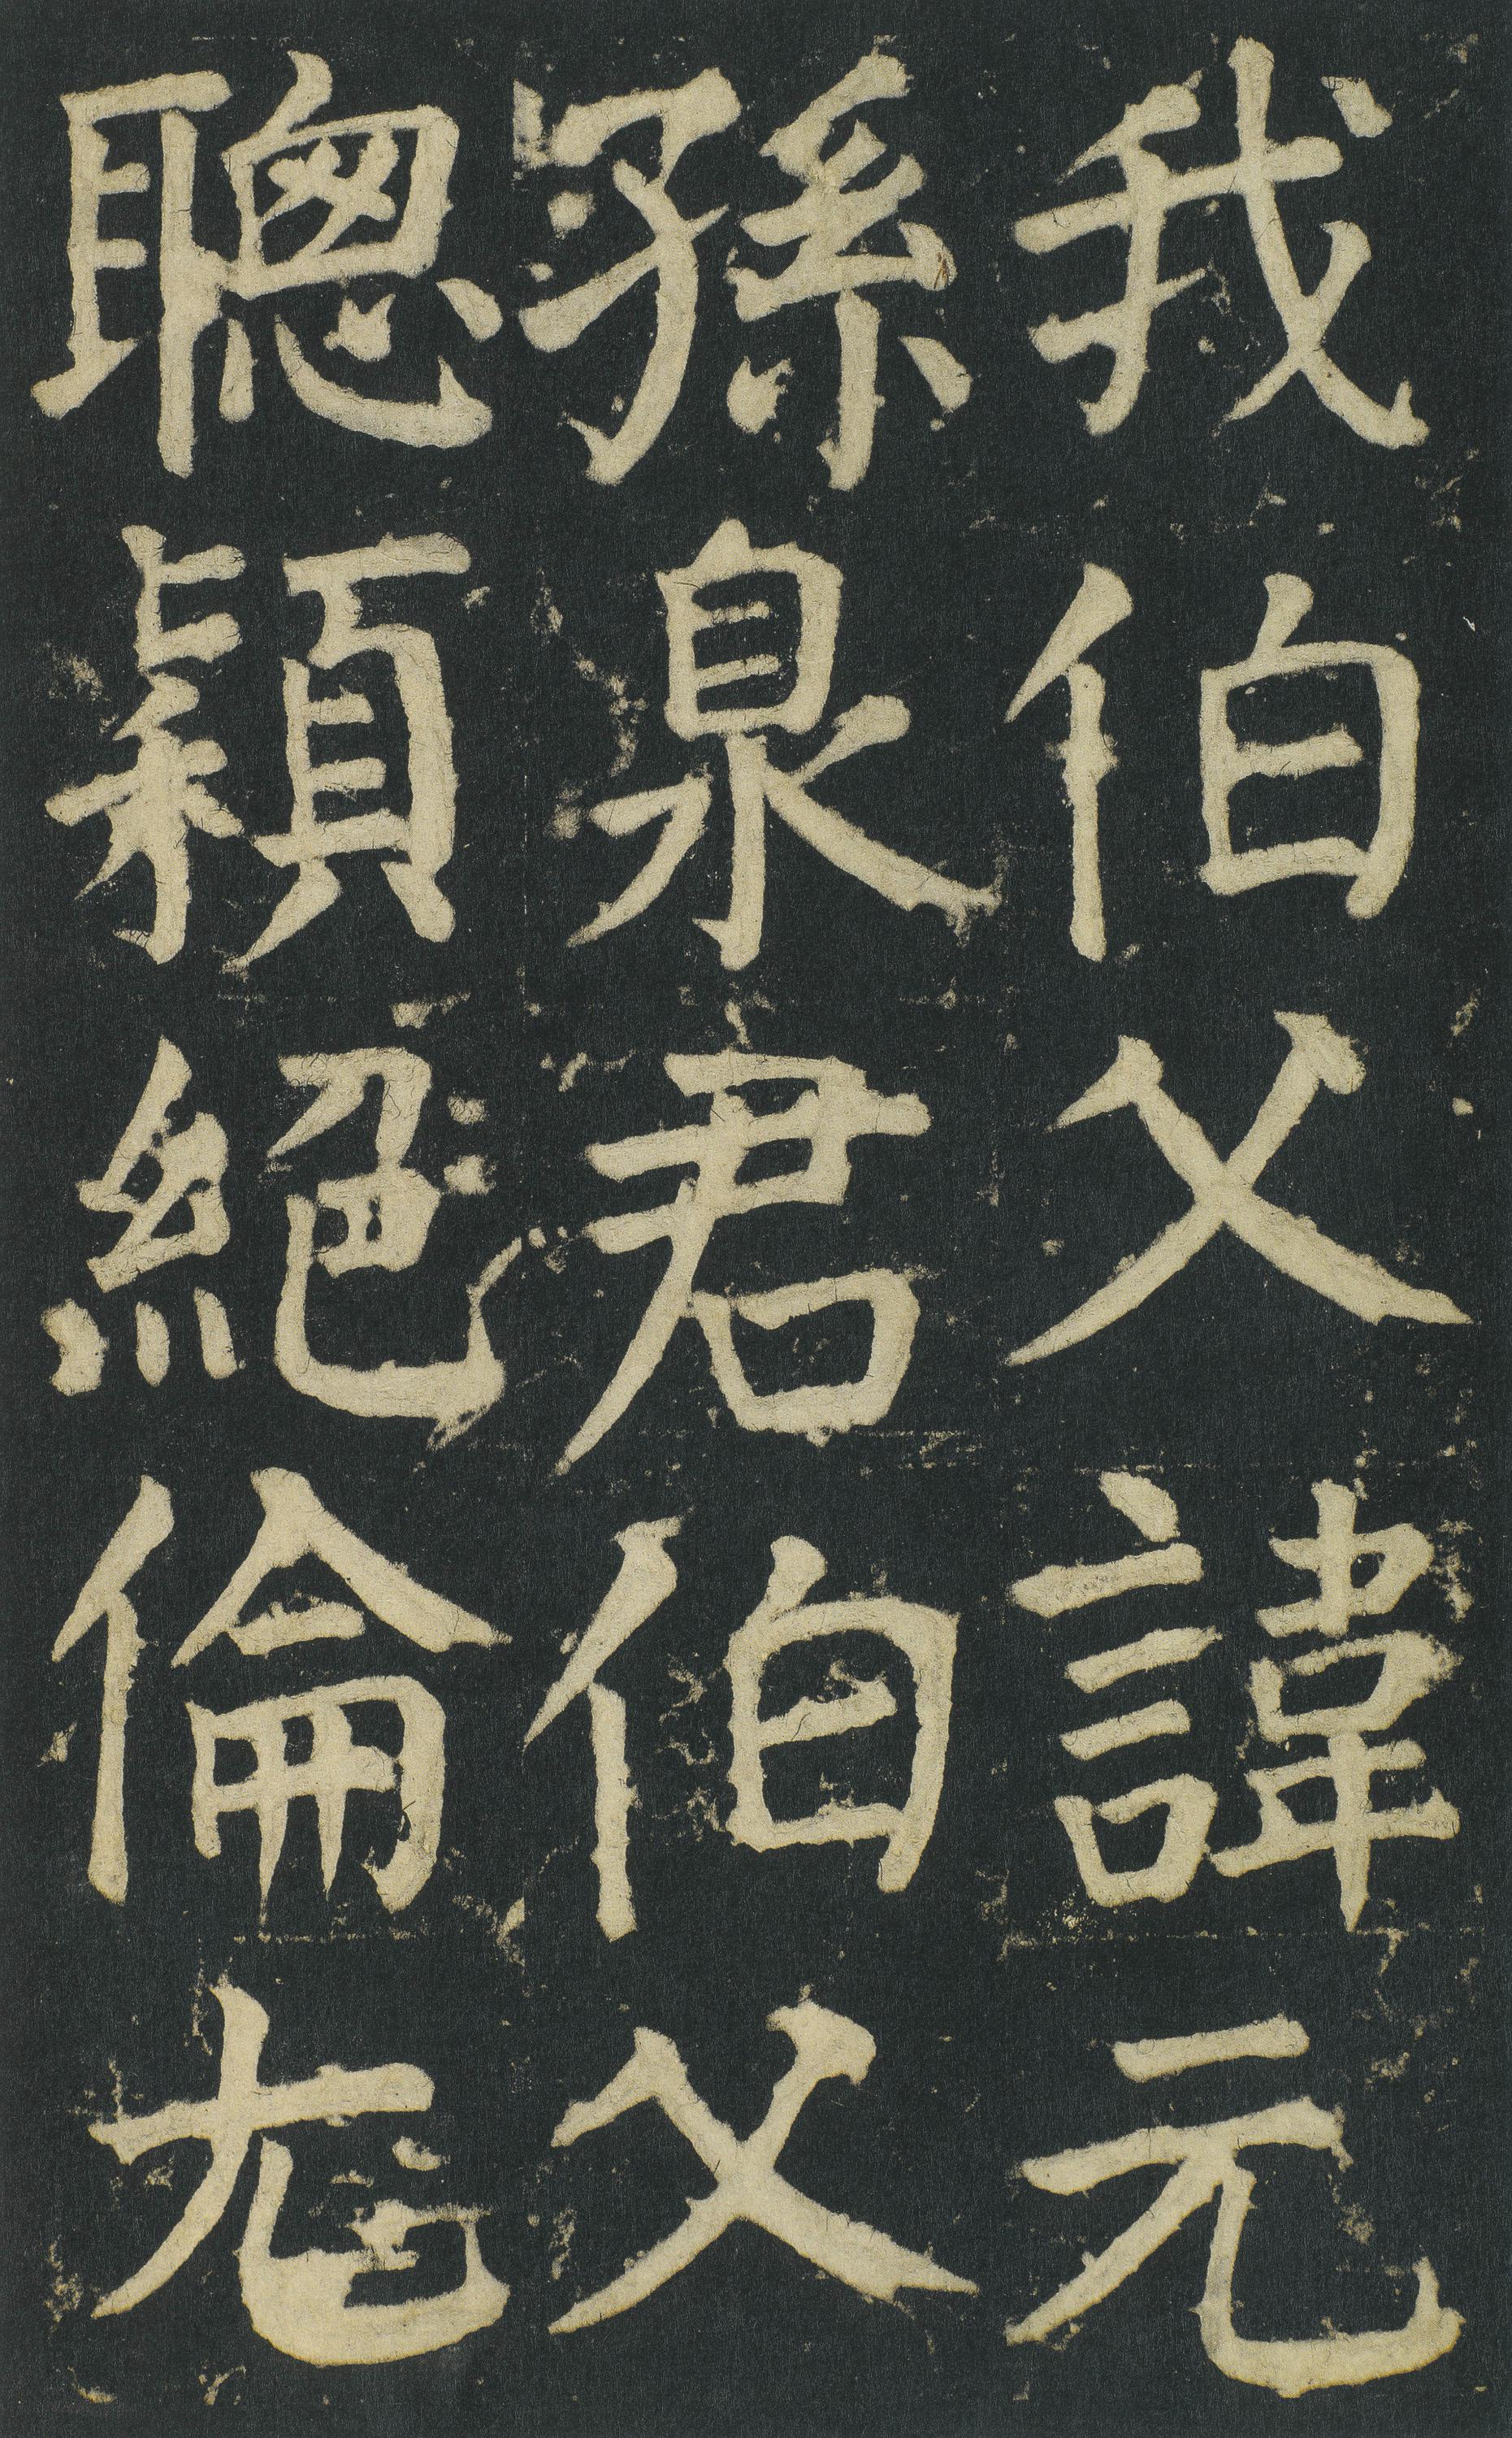 我伯父諱元
孫泉君伯父
聰穎絕倫尤